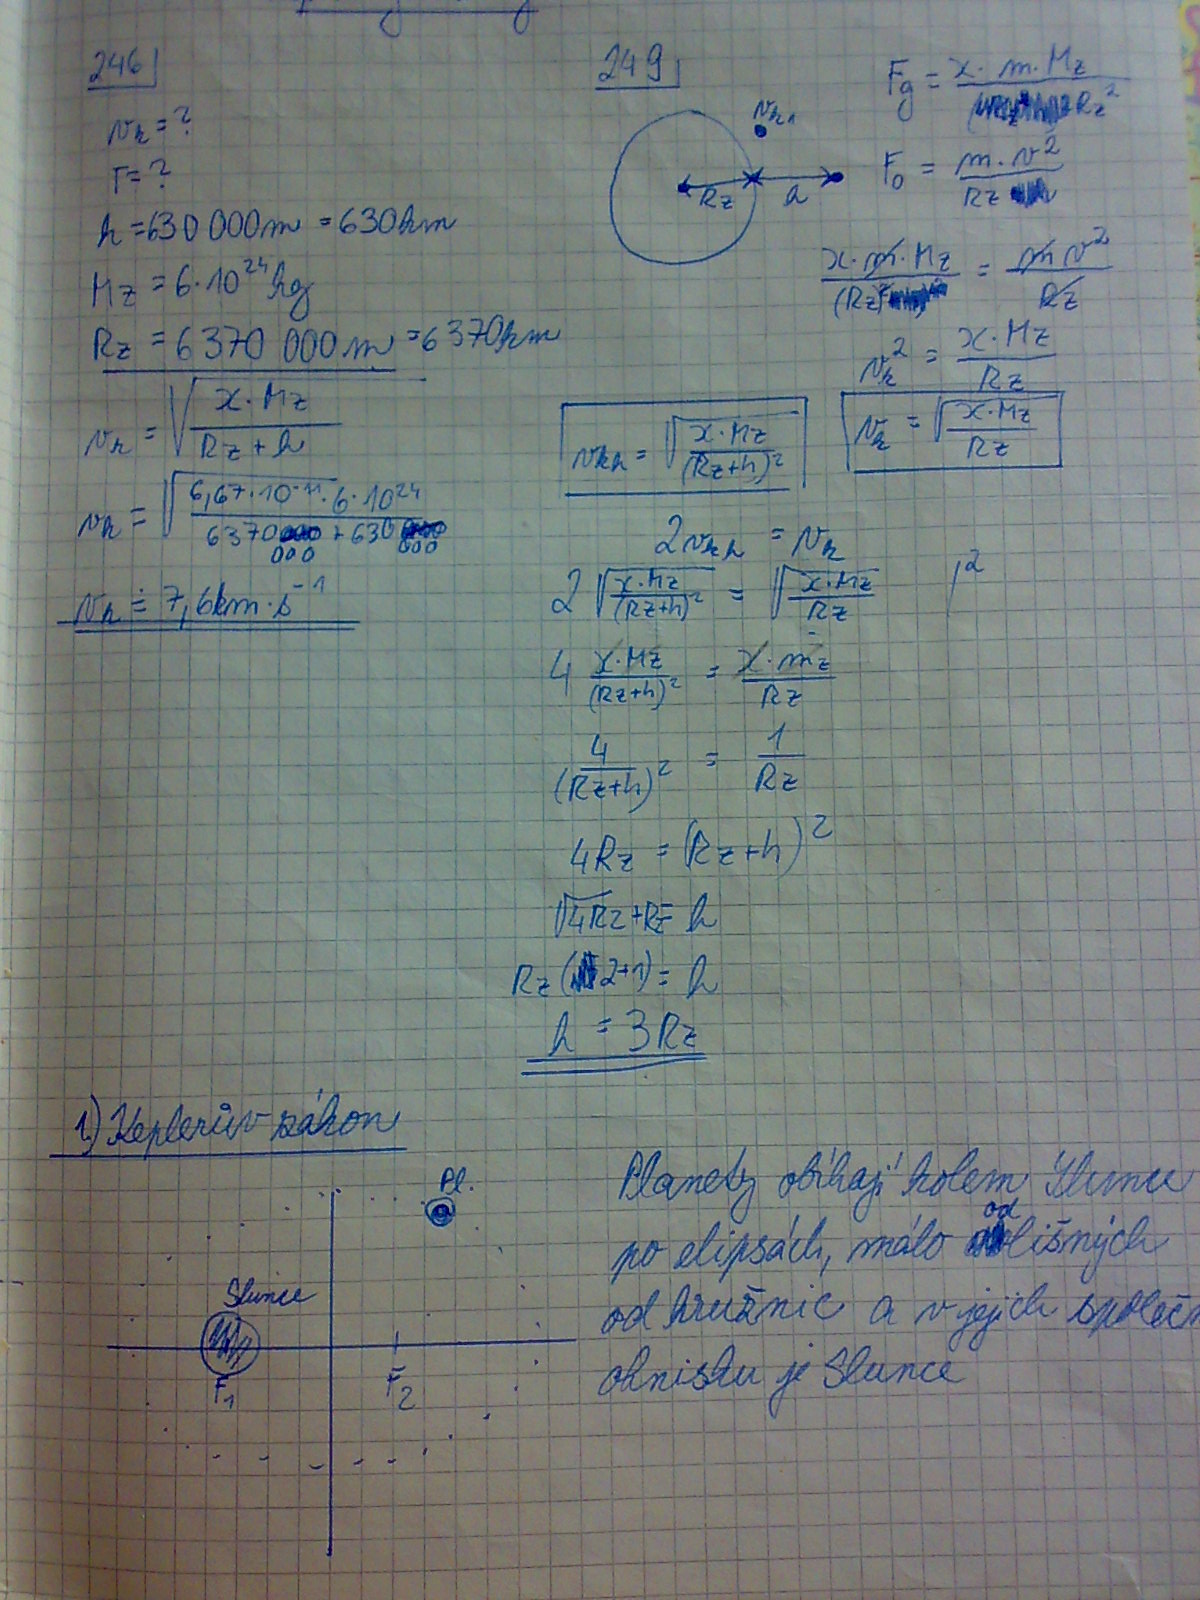 246
v_k = ?
T = ?
h = 630 000 m = 630 km
Mz = 6·10^24 kg
Rz = 6370 000 m = 6370 km
v_k = √(ϰ·Mz / (Rz + h))
v_k = √(6,67·10^-11 · 6·10^24 / (6370 000 + 630 000))
v_k ≐ 7,6 km·s^-1
249
v_kh
Rz h
Fg = ϰ·m·Mz / Rz^2
Fo = m·v^2 / Rz
ϰ·m·Mz / (Rz)^2 = m v^2 / Rz
v_k^2 = ϰ·Mz / Rz
v_k = √(ϰ·Mz / Rz)
v_kh = √(ϰ·Mz / (Rz+h)^2)
2v_kh = v_k
2 √(ϰ·Mz / (Rz+h)^2) = √(ϰ·Mz / Rz) /^2
4 ϰ·Mz / (Rz+h)^2 = ϰ·mz / Rz
4 / (Rz+h)^2 = 1 / Rz
4Rz = (Rz+h)^2
√4Rz + Rz = h
Rz (2+1) = h
h = 3Rz
1.) Keplerův zákon
Pl.
Slunce
F1
F2
Planety obíhají kolem Slunce
po elipsách, málo odlišných
od kružnic a v jejich společn
ohnisku je Slunce